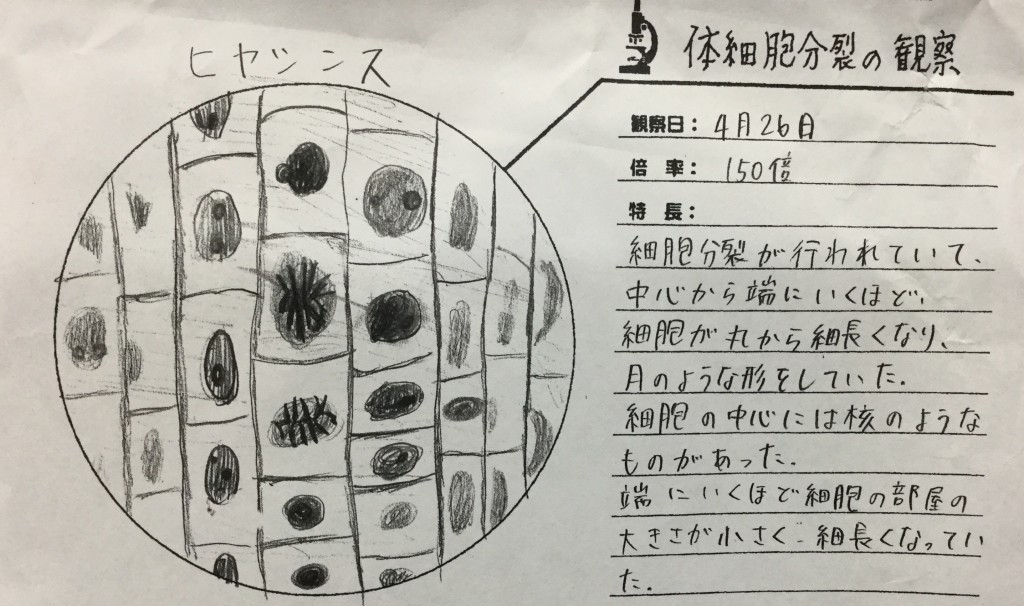 ヒヤシンス
体細胞分裂の観察
観察日： 4月26日
倍率： 150倍
特長：
細胞分裂が行われていて、
中心から端にいくほど、
細胞が丸から細長くなり、
月のような形をしていた。
細胞の中心には核のような
ものがあった。
端にいくほど細胞の部屋の
大きさが小さく細長くなってい
た。